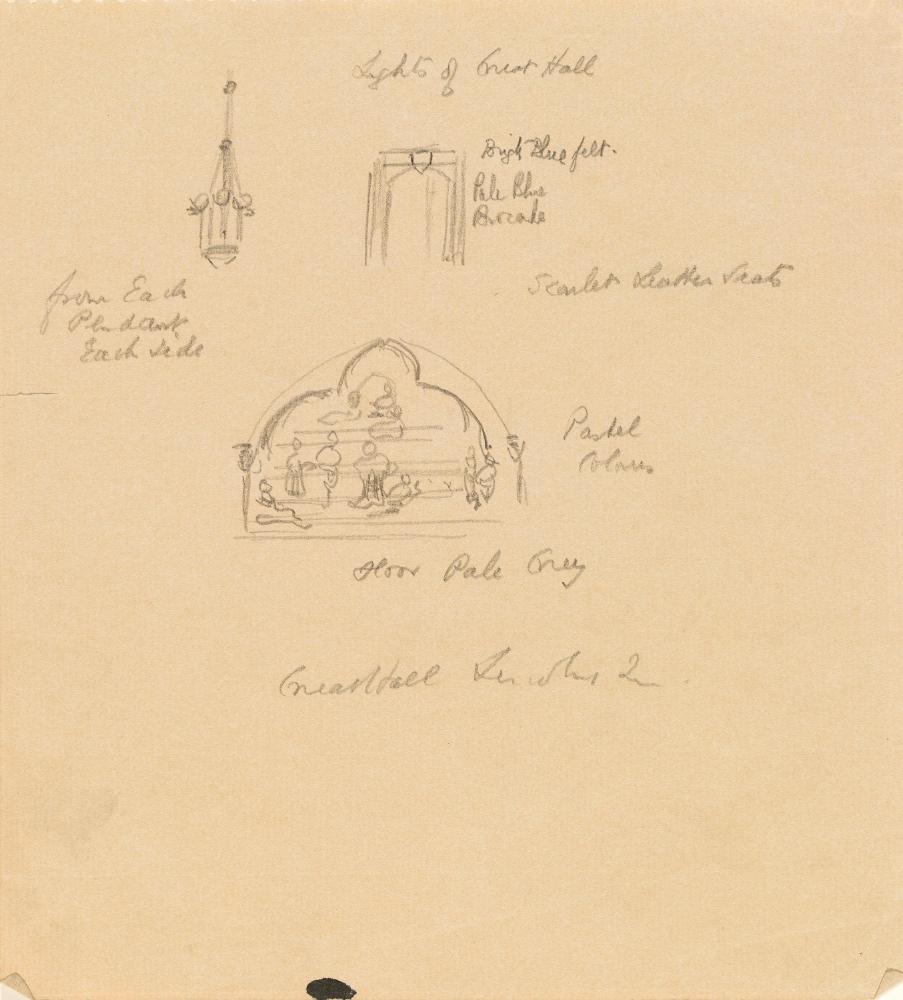 Lights of Great Hall
Bright Blue felt.
Pale Blue
Brocade
Scarlet Leather Seats
from Each
Pendant
Each Side
Pastel
Colours
Floor Pale Grey
Great Hall Lincolns Inn.